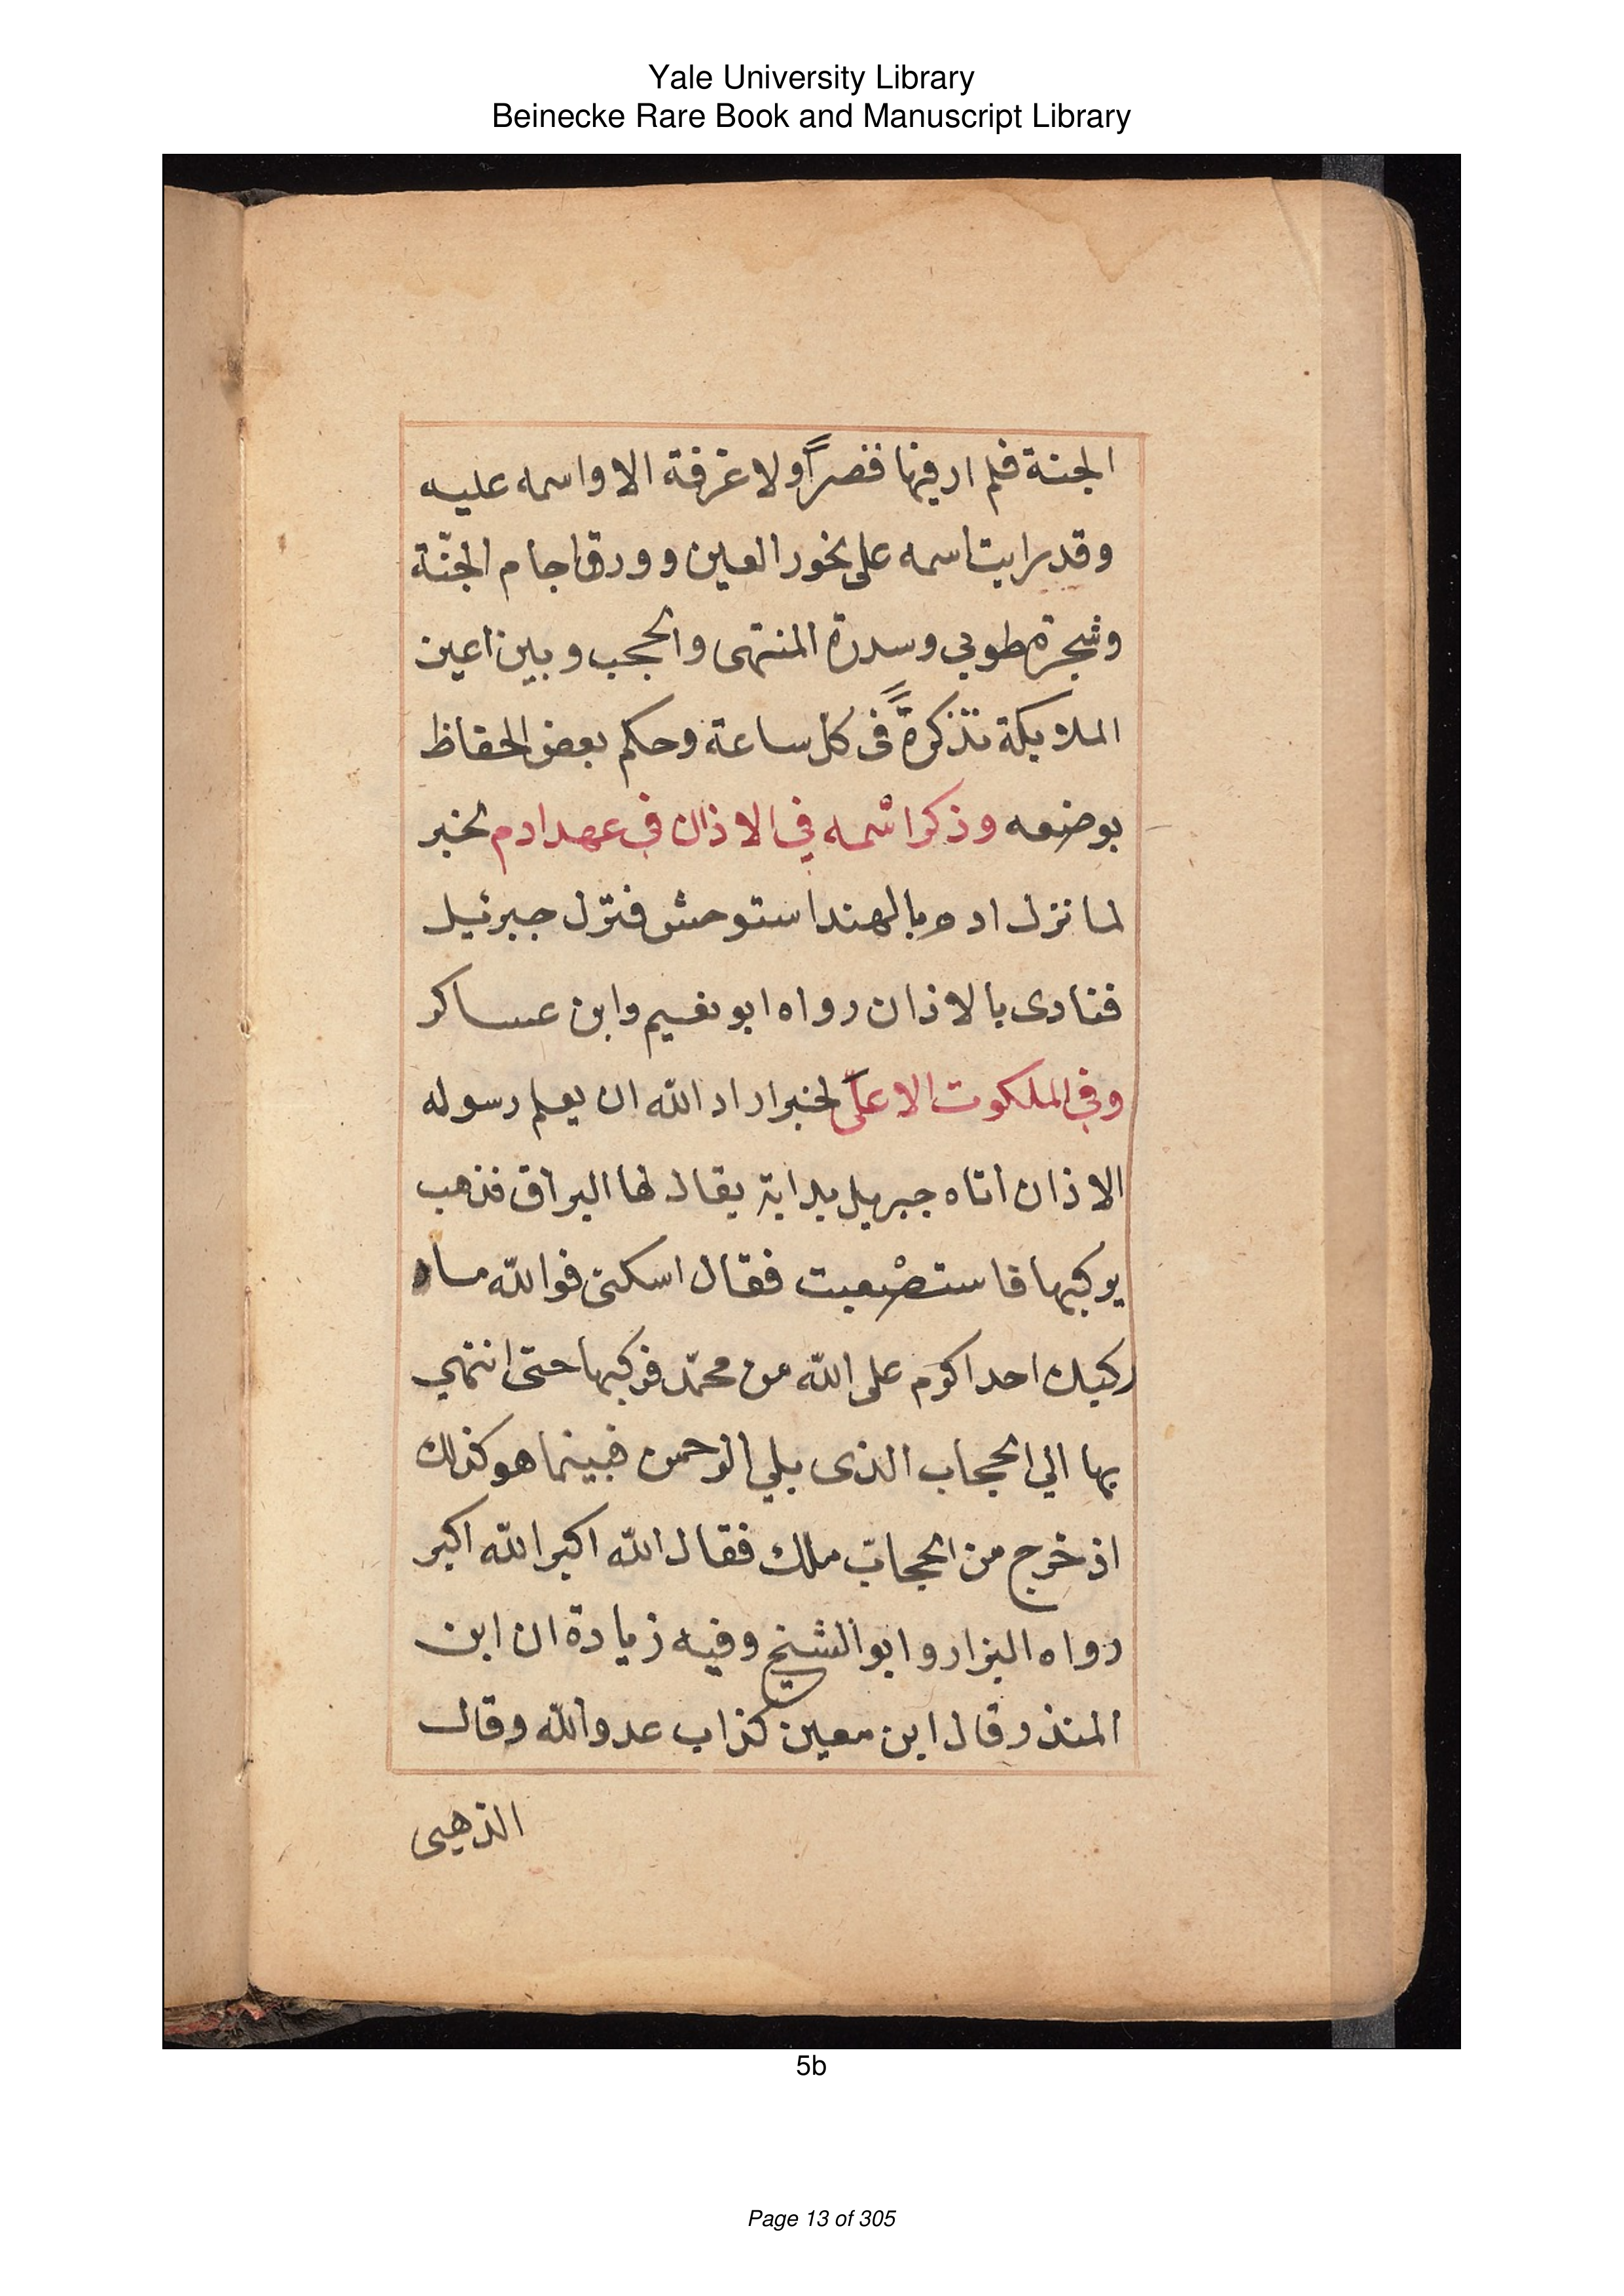 Yale University Library
Beinecke Rare Book and Manuscript Library
الجنة فلم ار فيها قصراً ولا غرفة الا واسمه عليه
وقد رايت اسمه على نحور العين وورق اجام الجنّة
وشجرة طوبي وسدرة المنتهى والحجب وبين اعين
الملايكة تذكرةً في كل ساعة وحكم بعض الحفاظ
بوضعه وذكر اسْمه في الاذان في عهد ادم لخبر
لما نزل ادم بالهند استوحش فنزّل جبرئيل
فنادى بالاذان رواه ابو نعيم وابن عساكر
وفي الملكوت الاعلى لخبر اراد اللّه ان يعلم رسوله
الاذان اتاه جبريل بدابة يقال لها البراق فذهب
يركبها فاستصْعبت فقال اسكنى فواللّه ما
ركبك احد اكرم على اللّه من محمّد فركبها حتى انتهي
بها الي الحجاب الذى يلي الرحمن فبينما هو كذلك
اذ خرج من الحجاب ملك فقال اللّه اكبر اللّه اكبر
رواه البزار وابو الشيخ وفيه زيادة ان ابن
المنذر وقال ابن معين كذاب عدو اللّه وقال
الذهبى
5b
Page 13 of 305